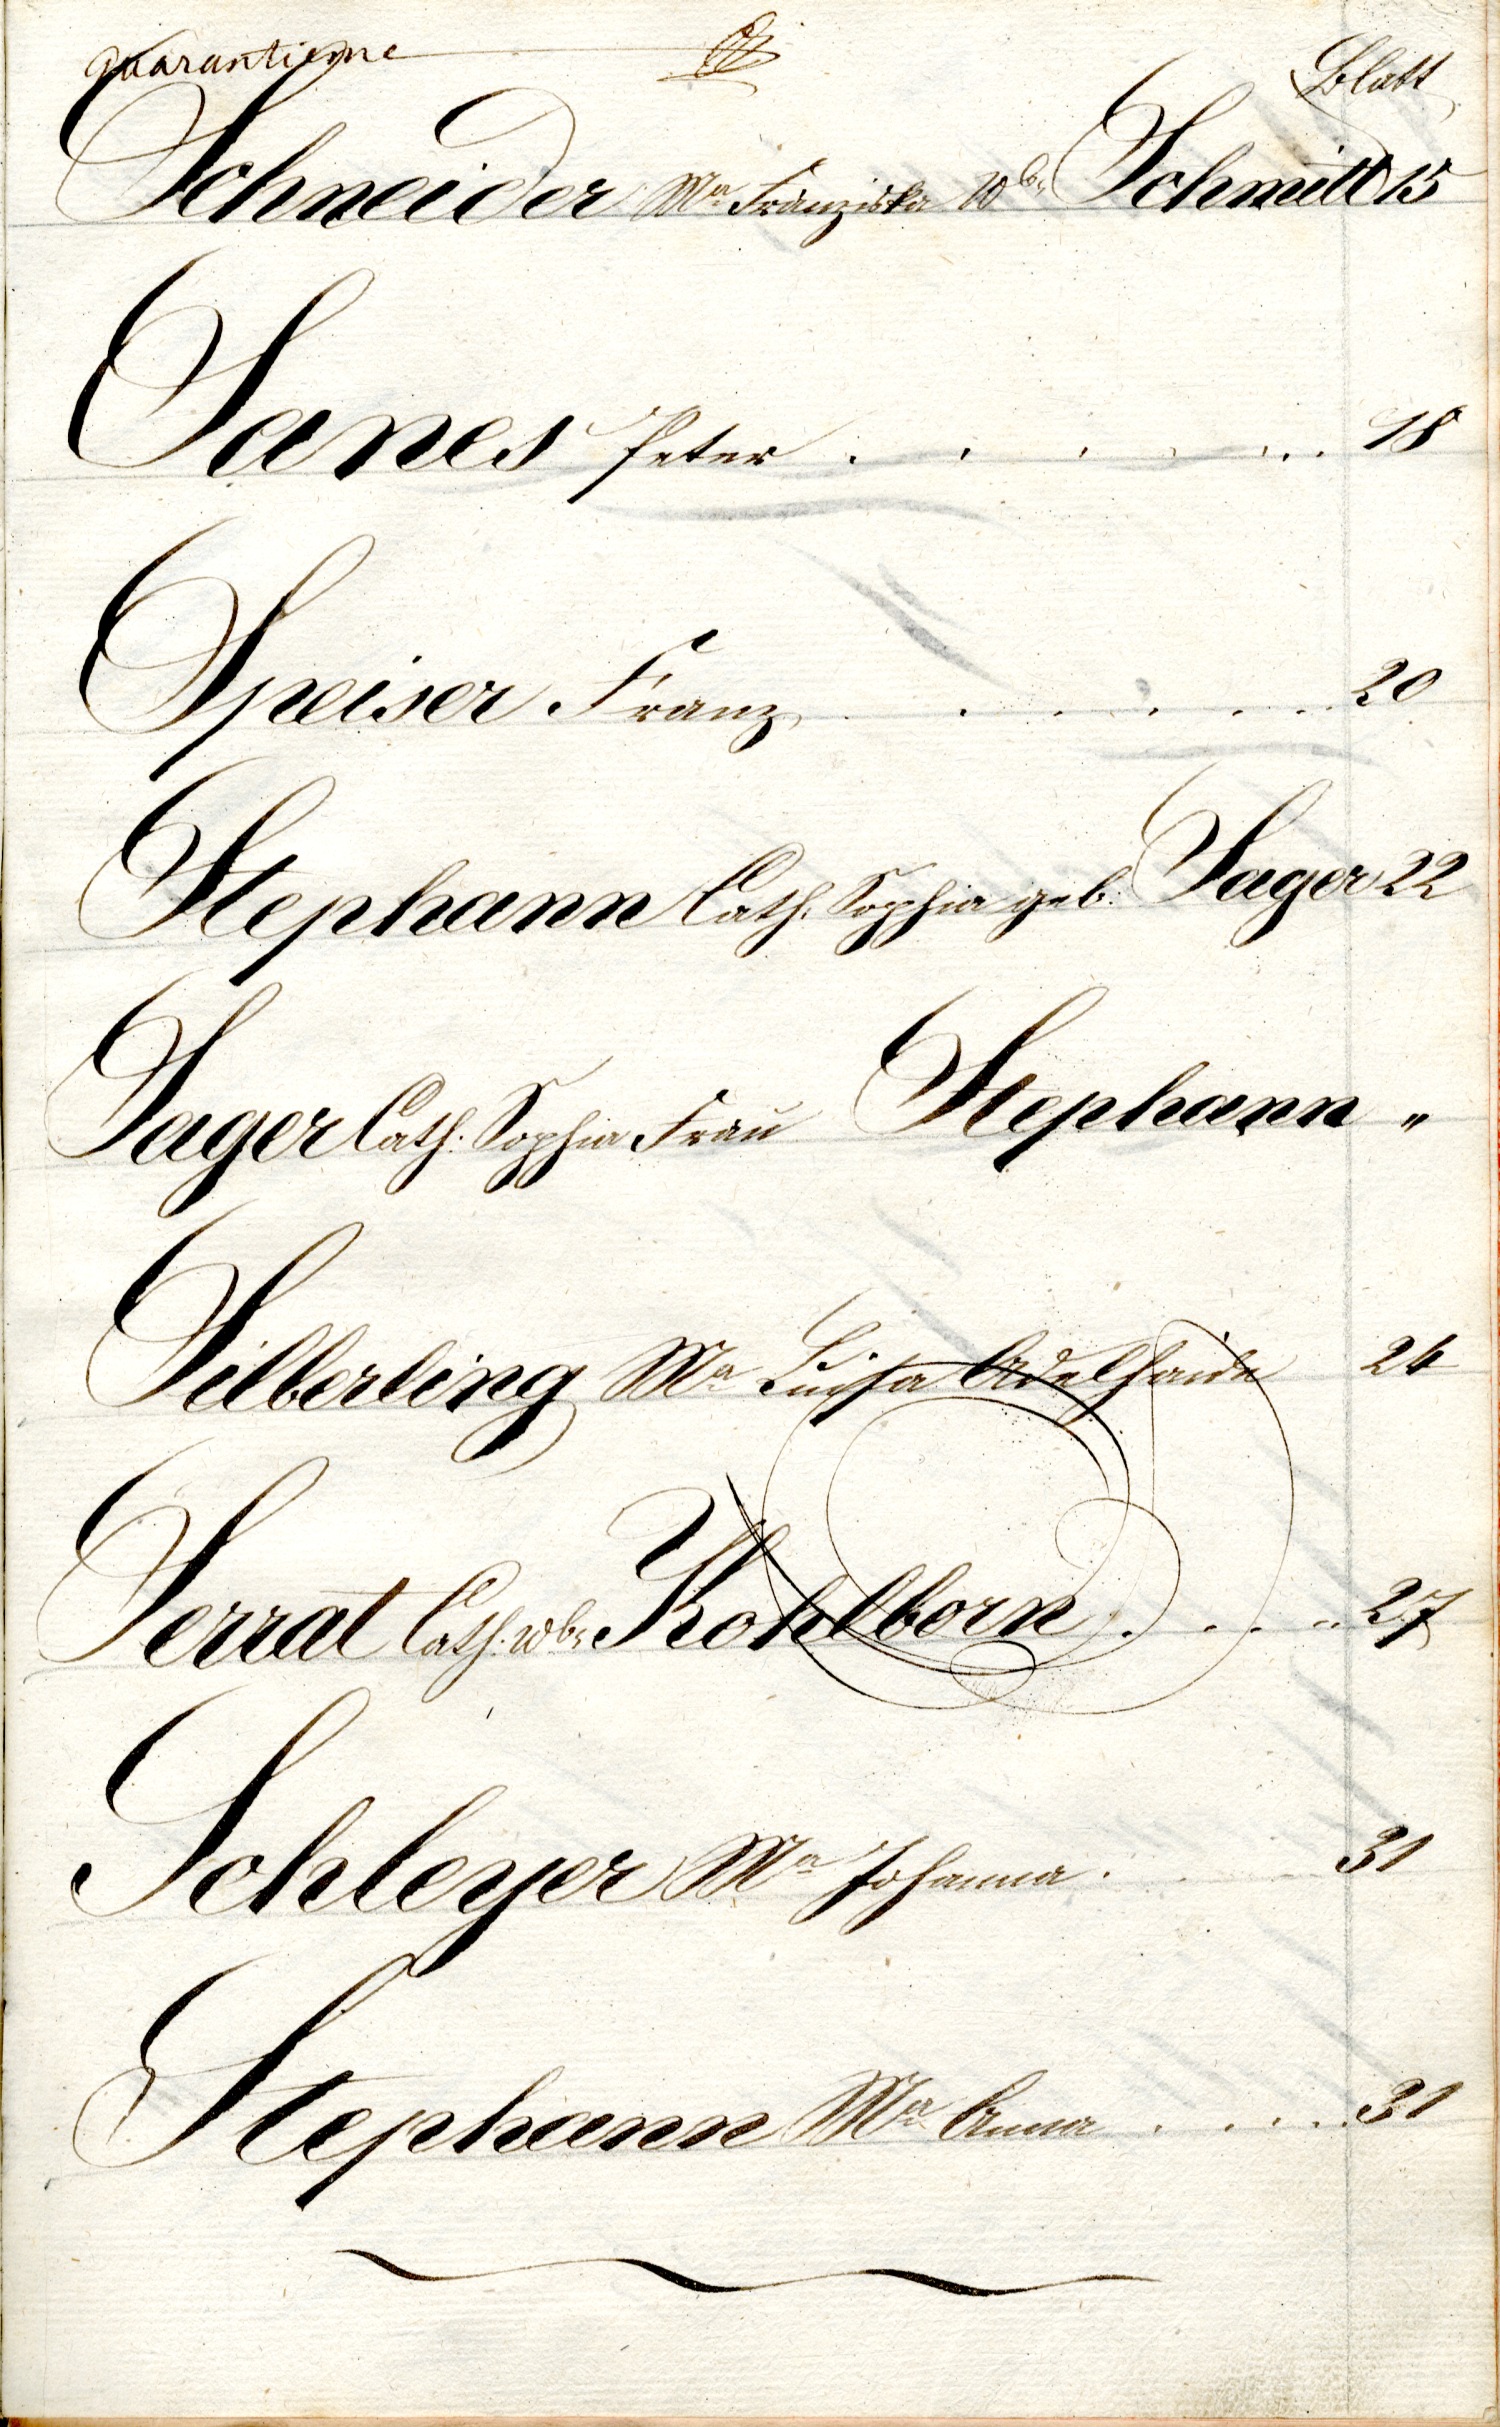 quarantieme
Blatt
Schneider Ma Franziska Wb. Schmitt 15
Sanes Peter . . . . . . . 18
Speiser Franz . . . . . . . 20
Stephann Cath. Sophia geb. Sager 22
Sager Cath. Sophia Frau Stephann "
Silberling Ma Luisa Adelhaide 26
Serrat Cath. wb. Kohlborn . . . . . 27
Schleyer Ma Johanna . 31
Stephann Ma Anna . . . . . 31